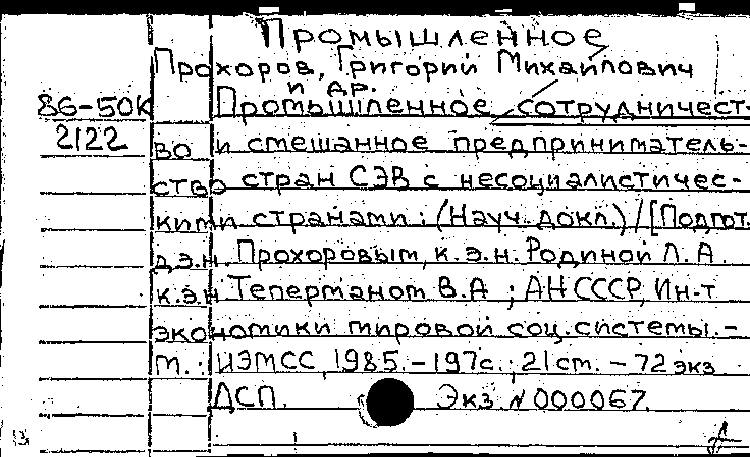 Промышленное
Прохоров, Григорий Михайлович
и др.
86-50к Промышленное сотрудничест-
2122 во и смешанное предприниматель-
ство стран СЭВ с несоциалистичес-
кими странами: (Науч. докл.) / [Подгот.
д.э.н. Прохоровым, к.э.н. Родиной Л.А.
к.э.н Теперманом В.А ; АН СССР, Ин-т
экономики мировой соц. системы. -
М.: ИЭМСС, 1985. - 197с.; 21 cm. - 72 экз
ДСП. Экз. № 000067.